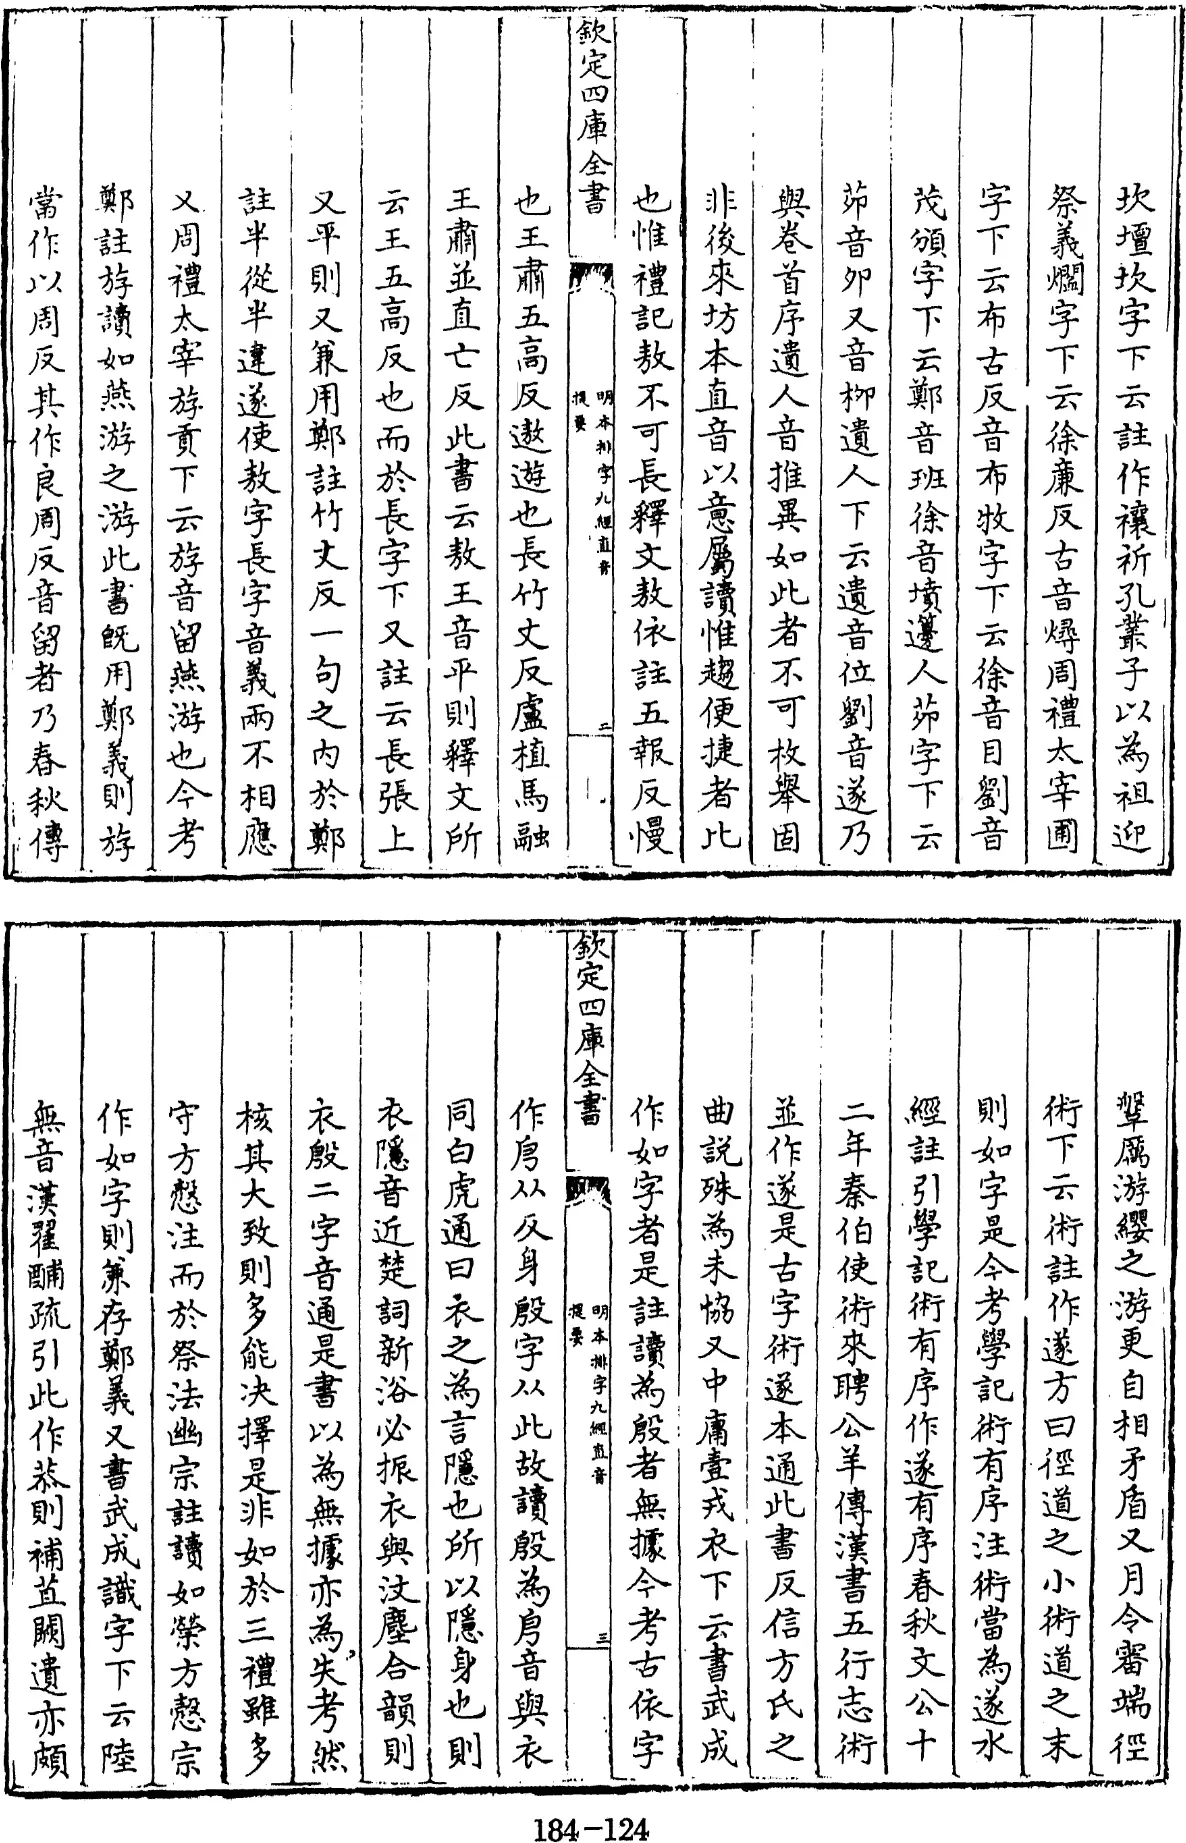 坎壇坎字下云註作禳祈孔叢子以為祖迎
祭義爓字下云徐亷反古音燖周禮太宰圃
字下云布古反音布牧字下云徐音目劉音
茂頒字下云鄭音班徐音墳籩人茆字下云
茆音夘又音柳遺人下云遺音位劉音遂乃
與巻首序遺人音推異如此者不可枚舉固
非後來坊本直音以意屬讀惟趨便捷者比
也惟禮記敖不可長釋文敖依註五報反慢
欽定四庫全書
明本排字九經直音
提要
二
也王肅五高反遨遊也長竹丈反盧植馬融
王肅並直亡反此書云敖王音平則釋文所
云王五高反也而於長字下又註云長張上
又平則又兼用鄭註竹丈反一句之内於鄭
註半從半違遂使敖字長字音義兩不相應
又周禮太宰斿貢下云斿音留燕游也今考
鄭註斿讀如燕游之游此書既用鄭義則斿
當作以周反其作良周反音留者乃春秋傳
鞶厲游纓之游更自相矛盾又月令審端徑
術下云術註作遂方曰徑道之小術道之末
則如字是今考學記術有序注術當為遂水
經註引學記術有序作遂有序春秋文公十
二年秦伯使術來聘公羊傳漢書五行志術
並作遂是古字術遂本通此書反信方氏之
曲説殊為未恊又中庸壹戎衣下云書武成
作如字者是註讀為殷者無據今考古依字
欽定四庫全書
明本排字九經直音
提要
三
作㐆从反身殷字从此故讀殷為㐆音與衣
同白虎通曰衣之為言隱也所以隱身也則
衣隱音近楚詞新浴必振衣與汶塵合韻則
衣殷二字音通是書以為無據亦為失考然
核其大致則多能決擇是非如於三禮雖多
守方慤注而於祭法幽宗註讀如禜方慤宗
作如字則兼存鄭義又書武成識字下云陸
無音漢翟酺疏引此作恭則補苴闕遺亦頗
184-124